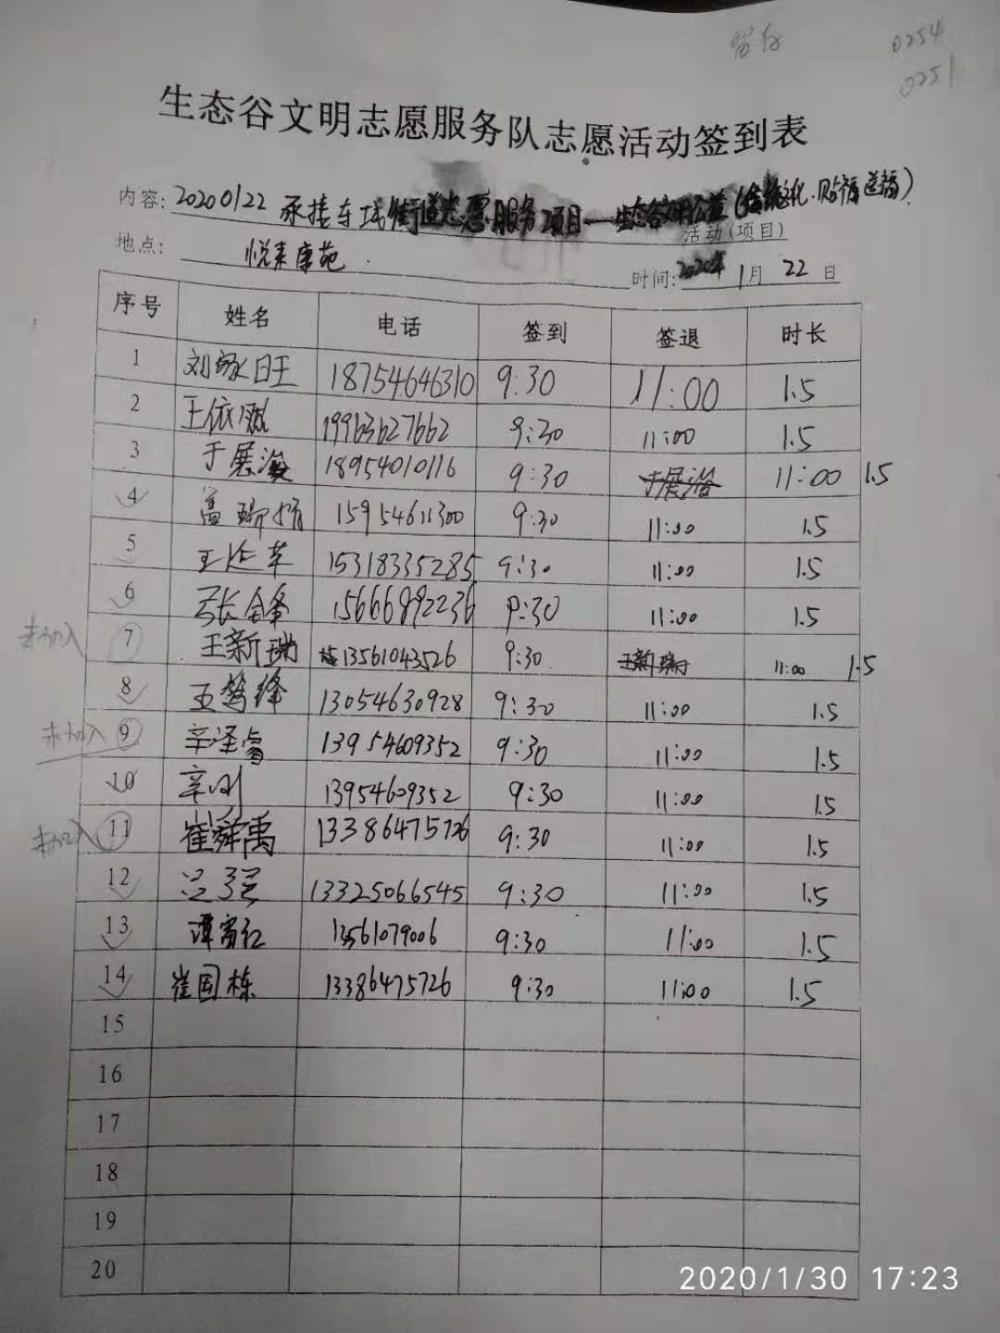 留存 0254
0251
生态谷文明志愿服务队志愿活动签到表
内容: 20200122 承接东城街道志愿服务项目—生态谷文明公益(传统文化·贴福送福)
活动(项目)
地点: 悦来康苑
时间: 2020年1月22日
序号 姓名 电话 签到 签退 时长
1 18754646310 9:30 11:00 1.5
2 王依 19963627662 9:30 11:00 1.5
3 于展 18954010116 9:30 11:00 1.5
4 15954611300 9:30 11:00 1.5
5 王 15318335285 9:30 11:00 1.5
6 张 15666892236 9:30 11:00 1.5
未加入 7 王新瑞 13561043526 9:30 王新瑞 11:00 1.5
8 13054630928 9:30 11:00 1.5
未加入 9 辛泽睿 13954609352 9:30 11:00 1.5
10 辛刚 13954609352 9:30 11:00 1.5
未加入 11 崔舜禹 13386475726 9:30 11:00 1.5
12 吕强 13325066545 9:30 11:00 1.5
13 谭富红 13561079006 9:30 11:00 1.5
14 崔国栋 13386475726 9:30 11:00 1.5
15
16
17
18
19
20
2020/1/30 17:23